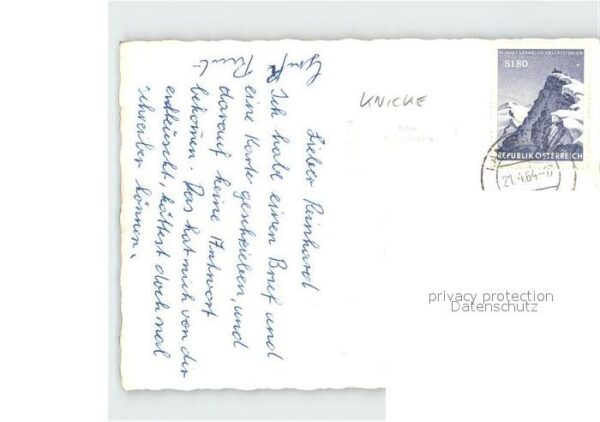 Lieber Reinhard
Ich habe einen Brief und
eine Karte geschrieben, und
darauf keine Antwort
bekommen. Das hat mich von dir
enttäuscht, hättest doch mal
schreiben können.
Gruß
KNICKE
S1.80
REPUBLIK ÖSTERREICH
21.4.64-17
privacy protection
Datenschutz